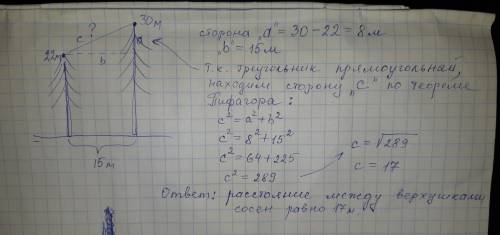 c ?
30м
22м
a
b
15м
сторона „a" = 30 − 22 = 8м
„b" = 15м
Т.к. треугольник прямоугольный,
находим сторону „c" по теореме
Пифагора:
c² = a² + b²
c² = 8² + 15²
c² = 64 + 225
c² = 289
c = √289
c = 17
Ответ: расстояние между верхушками
сосен равно 17м.